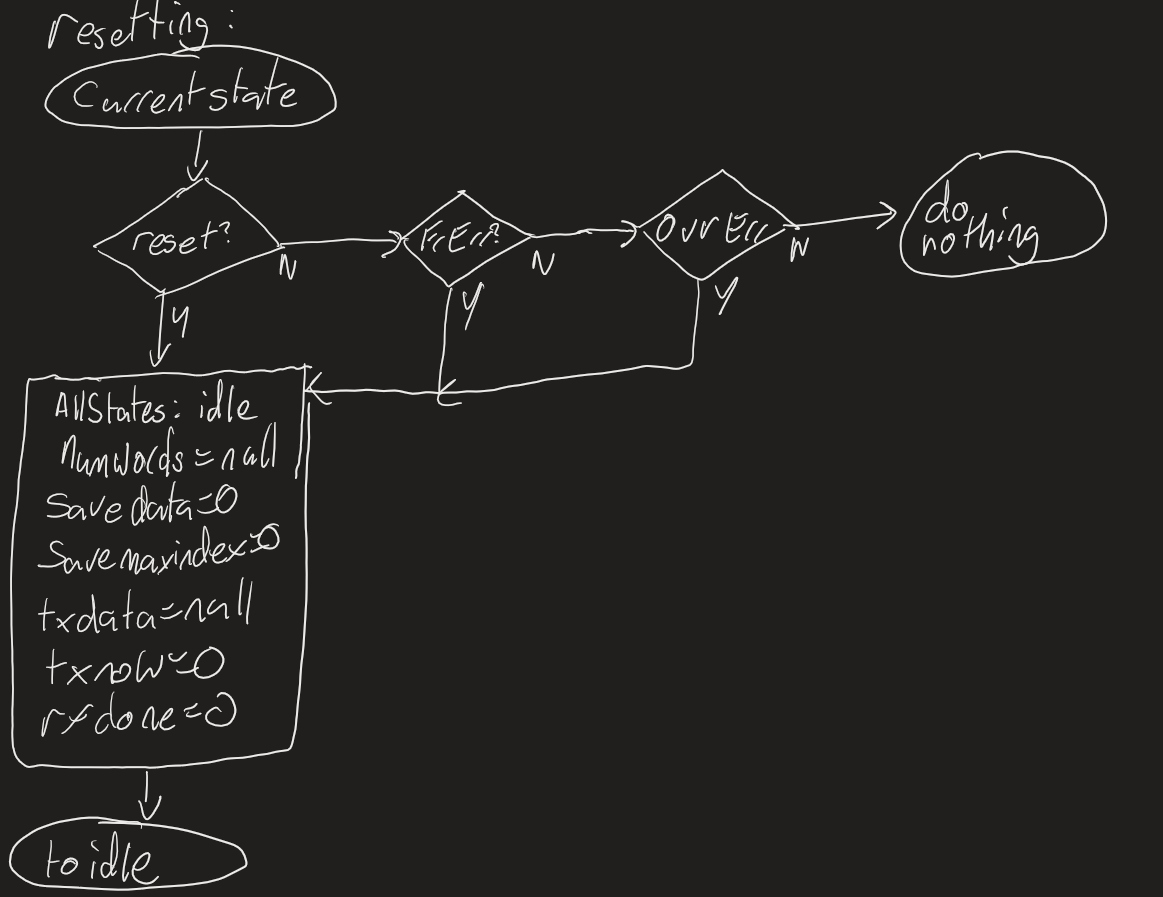 resetting:
Currentstate
reset?
N
Y
FrErr?
N
Y
OvrErr
N
Y
do
nothing
AllStates: idle
Numwords=null
Savedata=0
Savemaxindex=0
txdata=null
txnow=0
rxdone=0
to idle